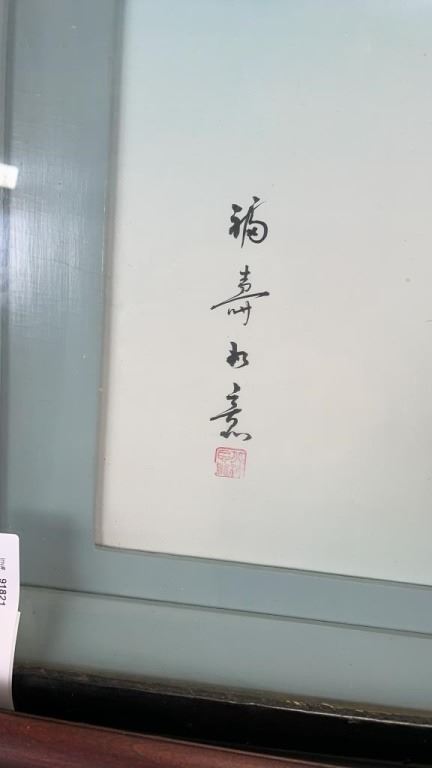 福壽如意
inv#. 91821